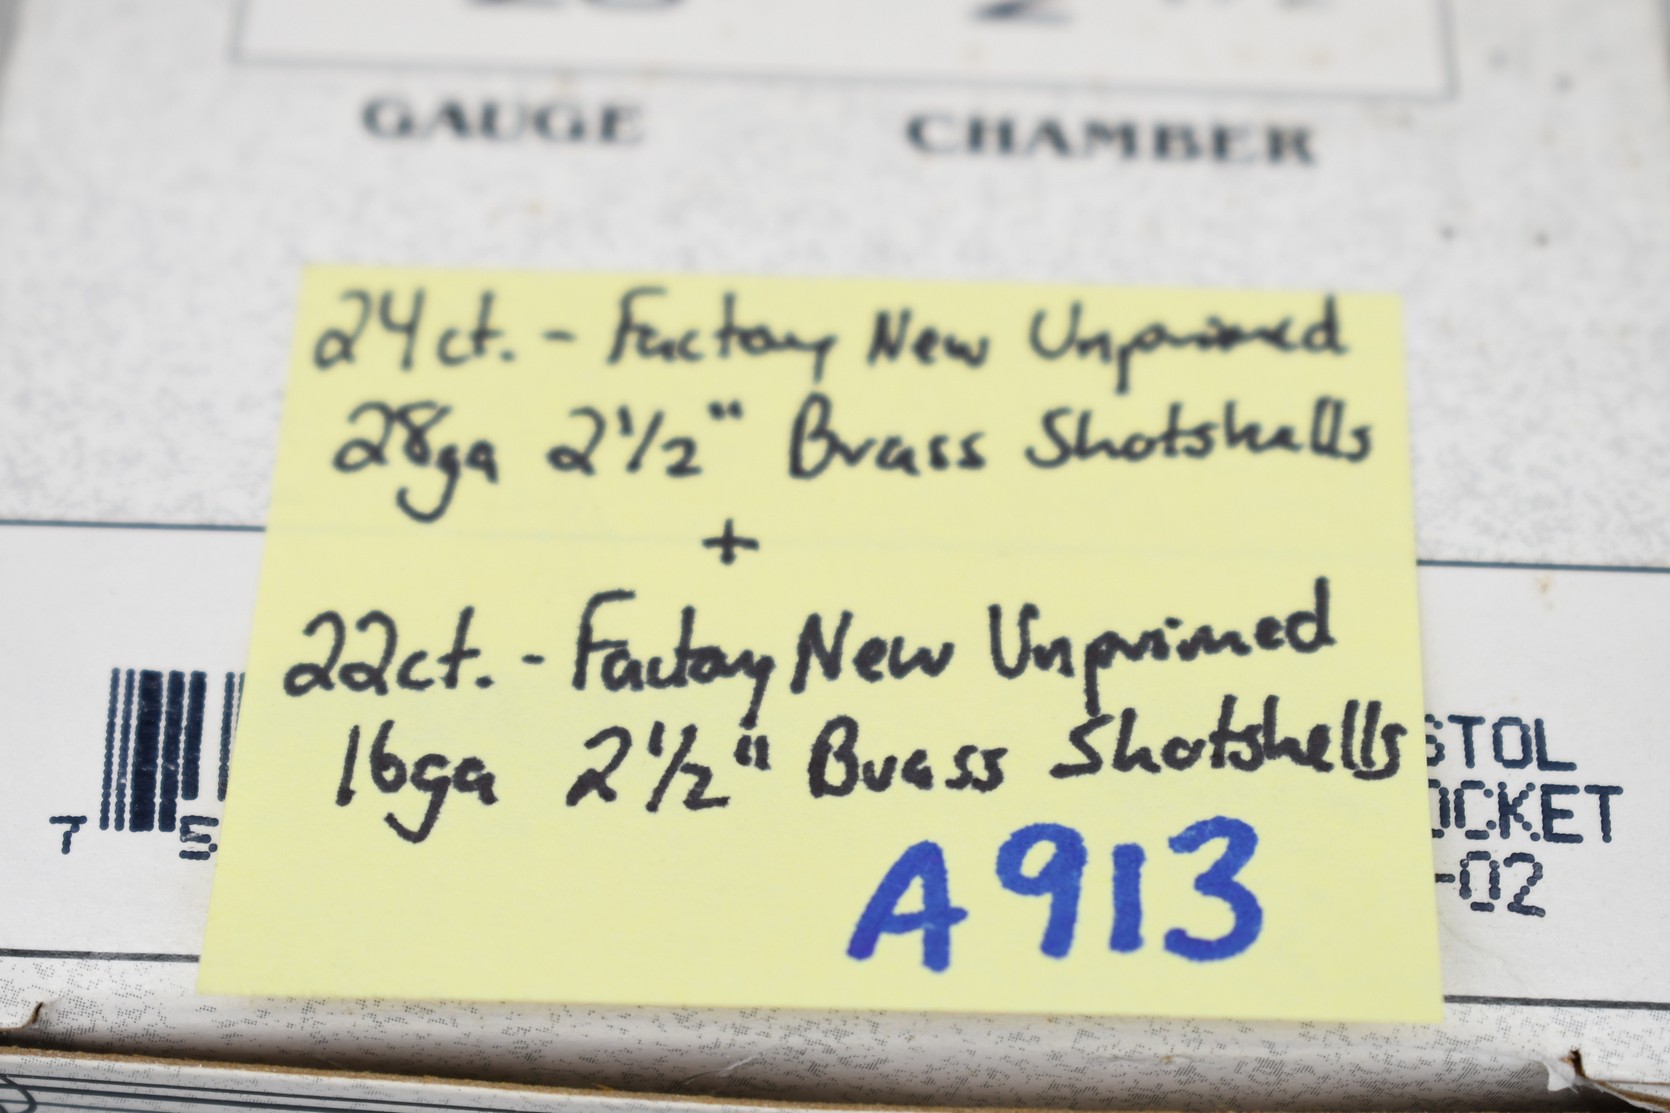 GAUGE CHAMBER
24ct. - Factory New Unprimed
28ga 2 1/2" Brass Shotshells
+
22ct. - Factory New Unprimed
16ga 2 1/2" Brass Shotshells
A913
7 5
STOL
OCKET
-02